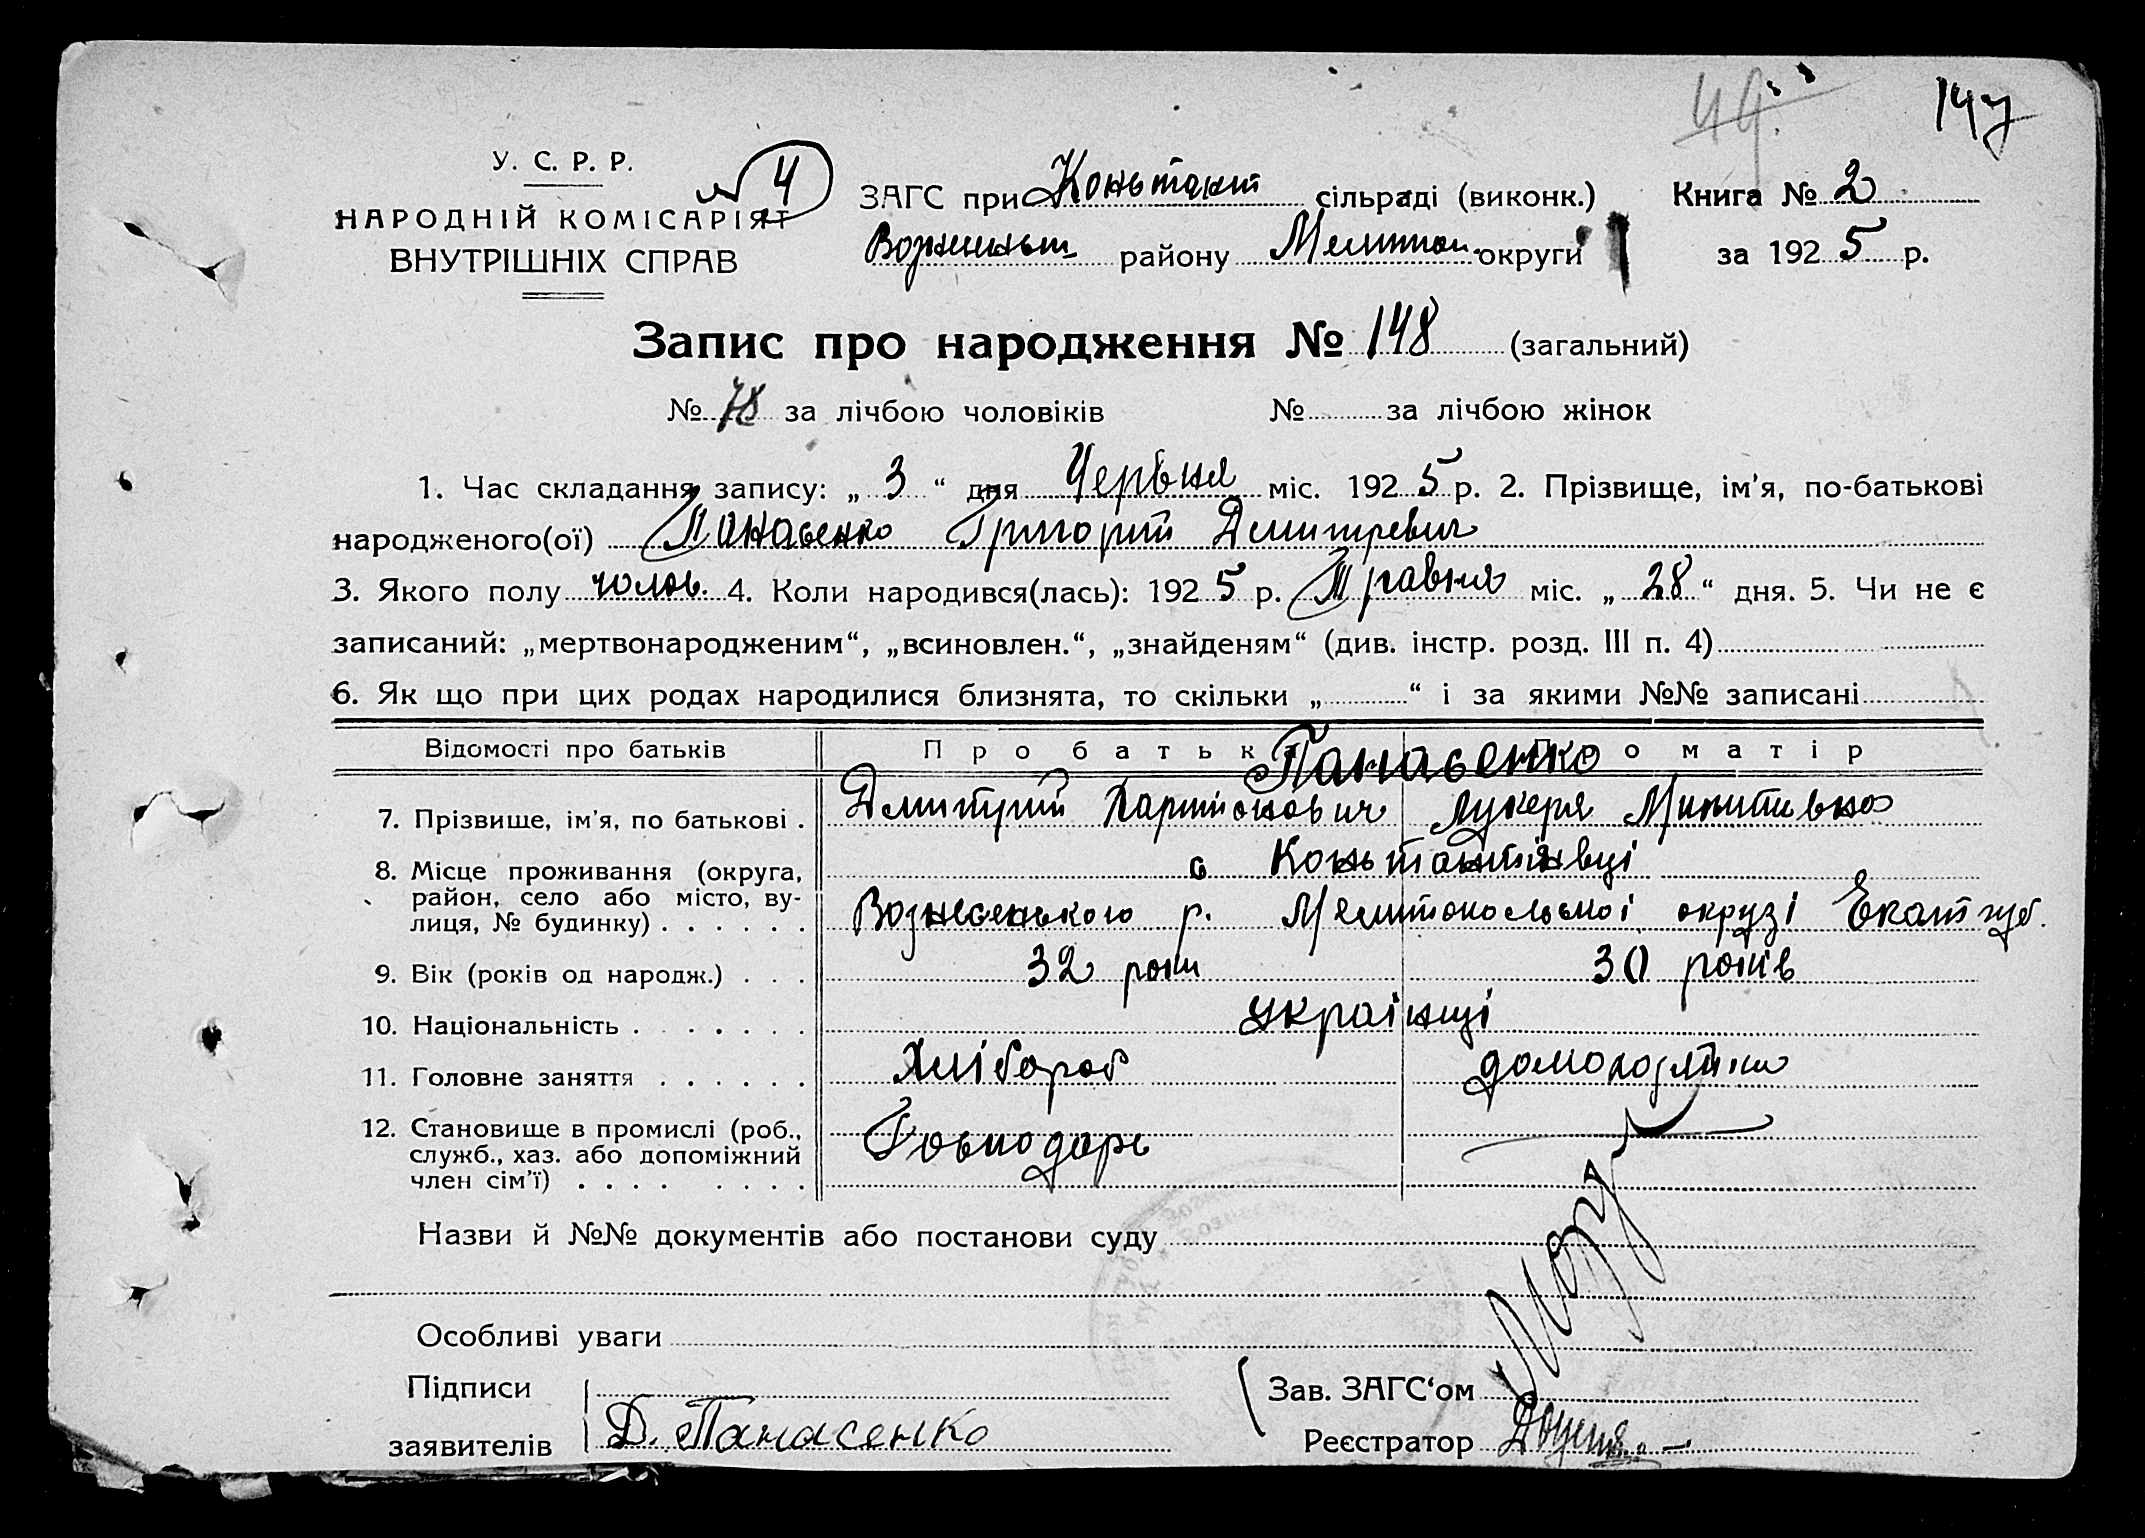 49.
147
У. С. Р. Р.
НАРОДНІЙ КОМІСАРІЯТ
ВНУТРІШНІХ СПРАВ
№ 4
ЗАГС при Констант сільраді (виконк.)
Книга № 2
района Мелитоп. округи
за 1925 р.
Запис про народження № 148 (загальний)
№ 78 за лічбою чоловіків № за лічбою жінок
1. Час складання запису: „ 3 “ дня Червня міс. 1925 р. 2. Прізвище, ім'я, по-батькові
народженого(ої) Панасенко Григорий Дмитревич
3. Якого полу чолов. 4. Коли народився(лась): 1925 р. Травня міс. „ 28 “ дня. 5. Чи не є
записаний: „мертвонародженим“, „всиновлен.“, „знайденям“ (див. інстр. розд. III п. 4)
6. Як що при цих родах народилися близнята, то скільки „ “ і за якими №№ записані
Відомості про батьків Про батька Про матір
Панасенко
7. Прізвище, ім'я, по батькові . Дмитрий Харитонович Лукеря Микитивна
8. Місце проживання (округа, район, село або місто, вулиця, № будинку) . . . . . .
с Константинівці
Вознесенького р. Мелитопольськоі окрузі Екат губ.
9. Вік (років од народж.) . . . 32 роки 30 років
10. Національність . . . . . . українці
11. Головне заняття . . . . . . Хлібороб домохозяйка
12. Становище в промислі (роб., служб., хаз. або допоміжний член сім'ї) . . . . . . . .
Господарь
Назви й №№ документів або постанови суду
Особливі уваги
Підписи
заявителів Д. Панасенко
Зав. ЗАГС‘ом
Реєстратор